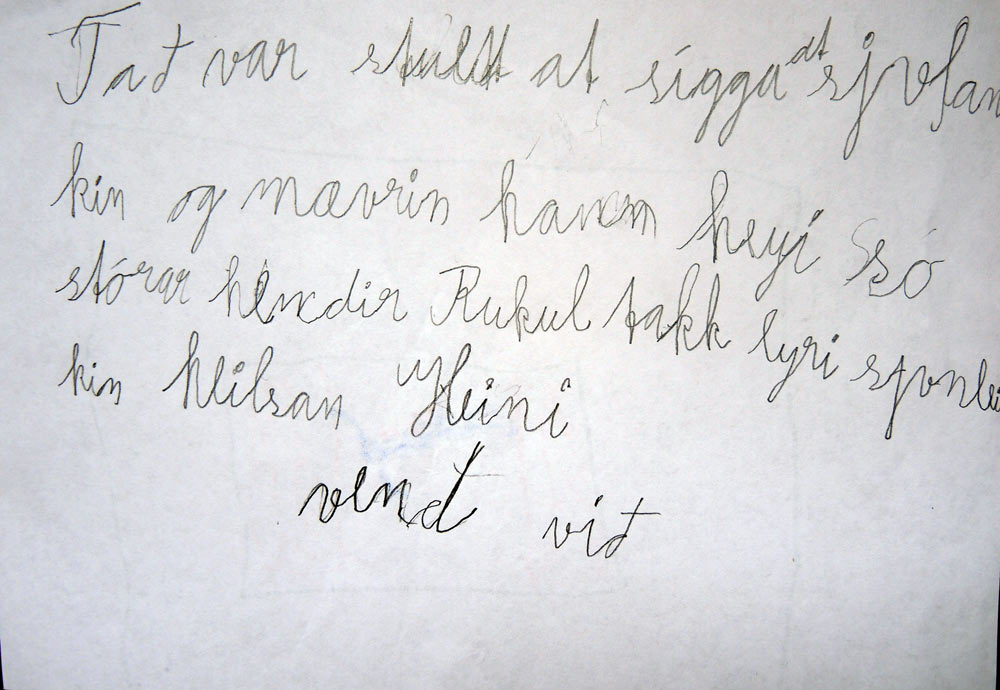 Tað var stuldt at sígga at sjvlan
kin og mævrin hanem heyi só
stórar hendir Rukul takk lyri sjvnlei
kin heilsan Heini
vend við